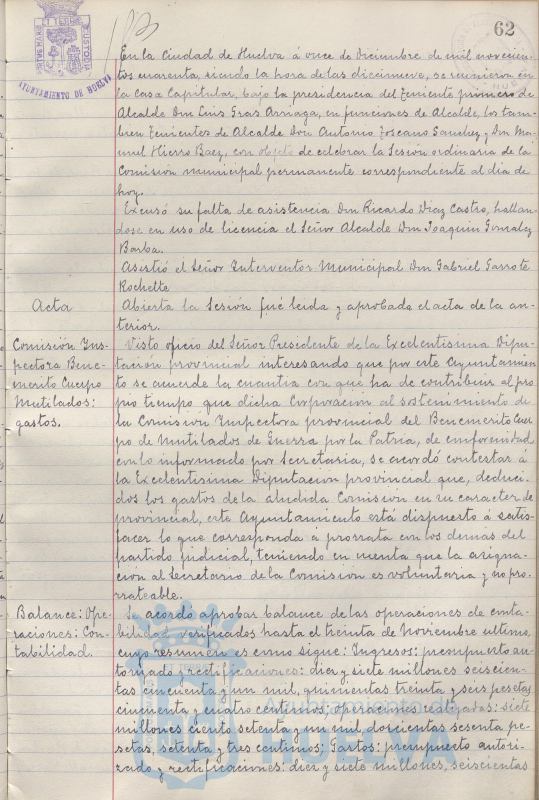 62
AYUNTAMIENTO DE HUELVA
En la Ciudad de Huelva á once de Diciembre de mil novecien-
tos cuarenta, siendo la hora de las diecinueve, se reunieron en
la Casa Capitular, bajo la presidencia del Teniente primero de
Alcalde Don Luis Gras Arriaga, en funciones de Alcalde, los tam-
bien Tenientes de Alcalde Don Antonio Toscano Sanchez y Don Ma-
nuel Hierro Baez, con objeto de celebrar la Sesión ordinaria de la
Comisión municipal permanente correspondiente al dia de
hoy.
Excusó su falta de asistencia Don Ricardo Diaz Castro, hallan-
dose en uso de licencia el Señor Alcalde Don Joaquin Gonzalez
Barba.
Asistió el Señor Interventor Municipal Don Gabriel Garrote
Rochette
Acta
Abierta la Sesión fué leida y aprobada el acta de la an-
terior.
Comisión Ins-
pectora Bene-
merito Cuerpo
Mutilados:
gastos.
Visto oficio del Señor Presidente de la Excelentisima Dipu-
tación provincial interesando que por este Ayuntamien-
to se acuerde la cuantia con que ha de contribuir al pro-
pio tiempo que dicha Corporación al sostenimiento de
la Comisión Inspectora provincial del Benemerito Cuer-
po de Mutilados de Guerra por la Patria, de conformidad
con lo informado por Secretaria, se acordó contestar á
la Excelentisima Diputacion provincial que, deduci-
dos los gastos de la aludida Comisión en su caracter de
provincial, este Ayuntamiento está dispuesto á satis-
facer lo que corresponda a prorrata con los demas del
partido judicial, teniendo en cuenta que la asigna-
ción al Secretario de la Comision es voluntaria y no pro-
rrateable.
Balance: Ope-
raciones: Con-
tabilidad.
Se acordó aprobar balance de las operaciones de conta-
bilidad verificados hasta el treinta de Noviembre ultimo,
cuyo resumen es como sigue: Ingresos: presupuesto au-
torizado y rectificaciones: diez y siete millones seiscien-
tas cincuenta y un mil, quinientas treinta y seis pesetas
cincuenta y cuatro centimos, operaciones realizadas: siete
millones ciento setenta y un mil, doscientas sesenta pe-
setas, setenta y tres centimos; Gastos: presupuesto autori-
zado y rectificaciones: diez y siete millones, seiscientas
Ayuntamiento de
HUELVA